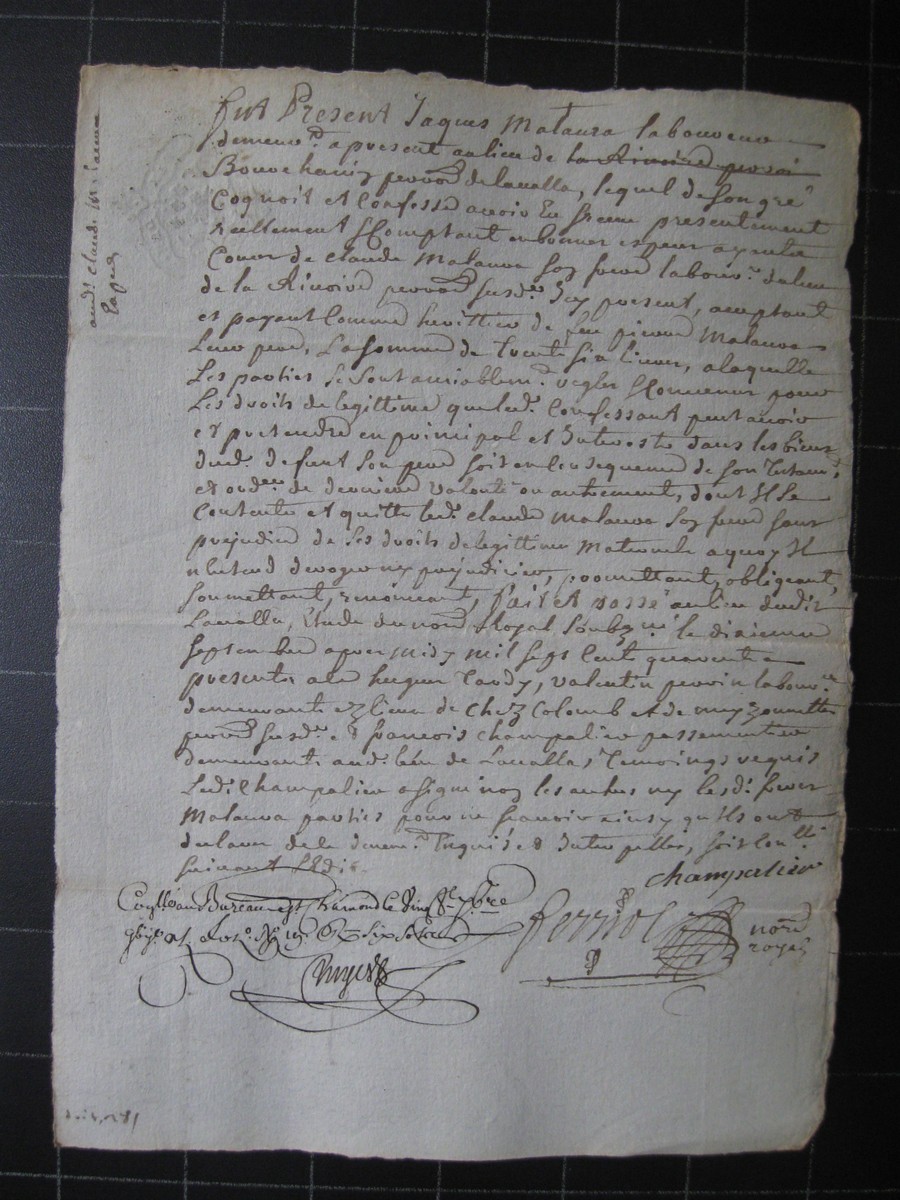 fut Present Jaques Mataura laboureur
demeur.t a present au lieu de la Rivoire parroi
parro.d de Lavalla, lequel de son gré
Cognoit et Confesse avoir Eu et receu presentement
reellement et Comptant en bonnes especes ayants
Cours de Claude Mataura son frere labour.r du lieu
de la Rivoire parro.d susd.e Icy present, acceptant
et payant Comme herittier de feu pierre Mataura
Leur pere, La somme de Trente six livres, a laquelle
Les parties se sont amiablem.t regler et Convenus pour
Les droits de legittime que led.t Confessant peut avoir
et pretendre en principal et Interests dans les biens
dud.t defunt son pere soit en Consequence de son Testam.t
et ord.ce de derniere volonté ou autrement, dont Il se
Contente et quitte led.t Claude Mataura son frere sans
prejudice de ses droits de legittime Maternels a quoy Il
n'entend deroger ny prejudicier, promettant, obligeant,
soumettant, renoncant, fait et passé au lieu dudit
Lavalla, Etude du no.re Royal soubz.né le dixieme
septembre apres midy mil sept Cent quarante
presents a hugues Tardy, valentin perrin labour.rs
demeurants ez lieux de Chez Colomb et de
parro.d susd.e et francois Champalier passementier
demeurant aud. lieu de Lavalla, Temoings requis
Led. Champalier a signé non les autres ny lesd.t freres
Mataura parties pour ne scavoir ainsy qu'ils ont
declaré de ce Enquis et Interpellés, soit Con.llé
suivant L'Edit
champalier
Con.llé au Bureau de St Chamond le 7bre
six sols
ferriol no.re royal
aud.t Claude Mataura